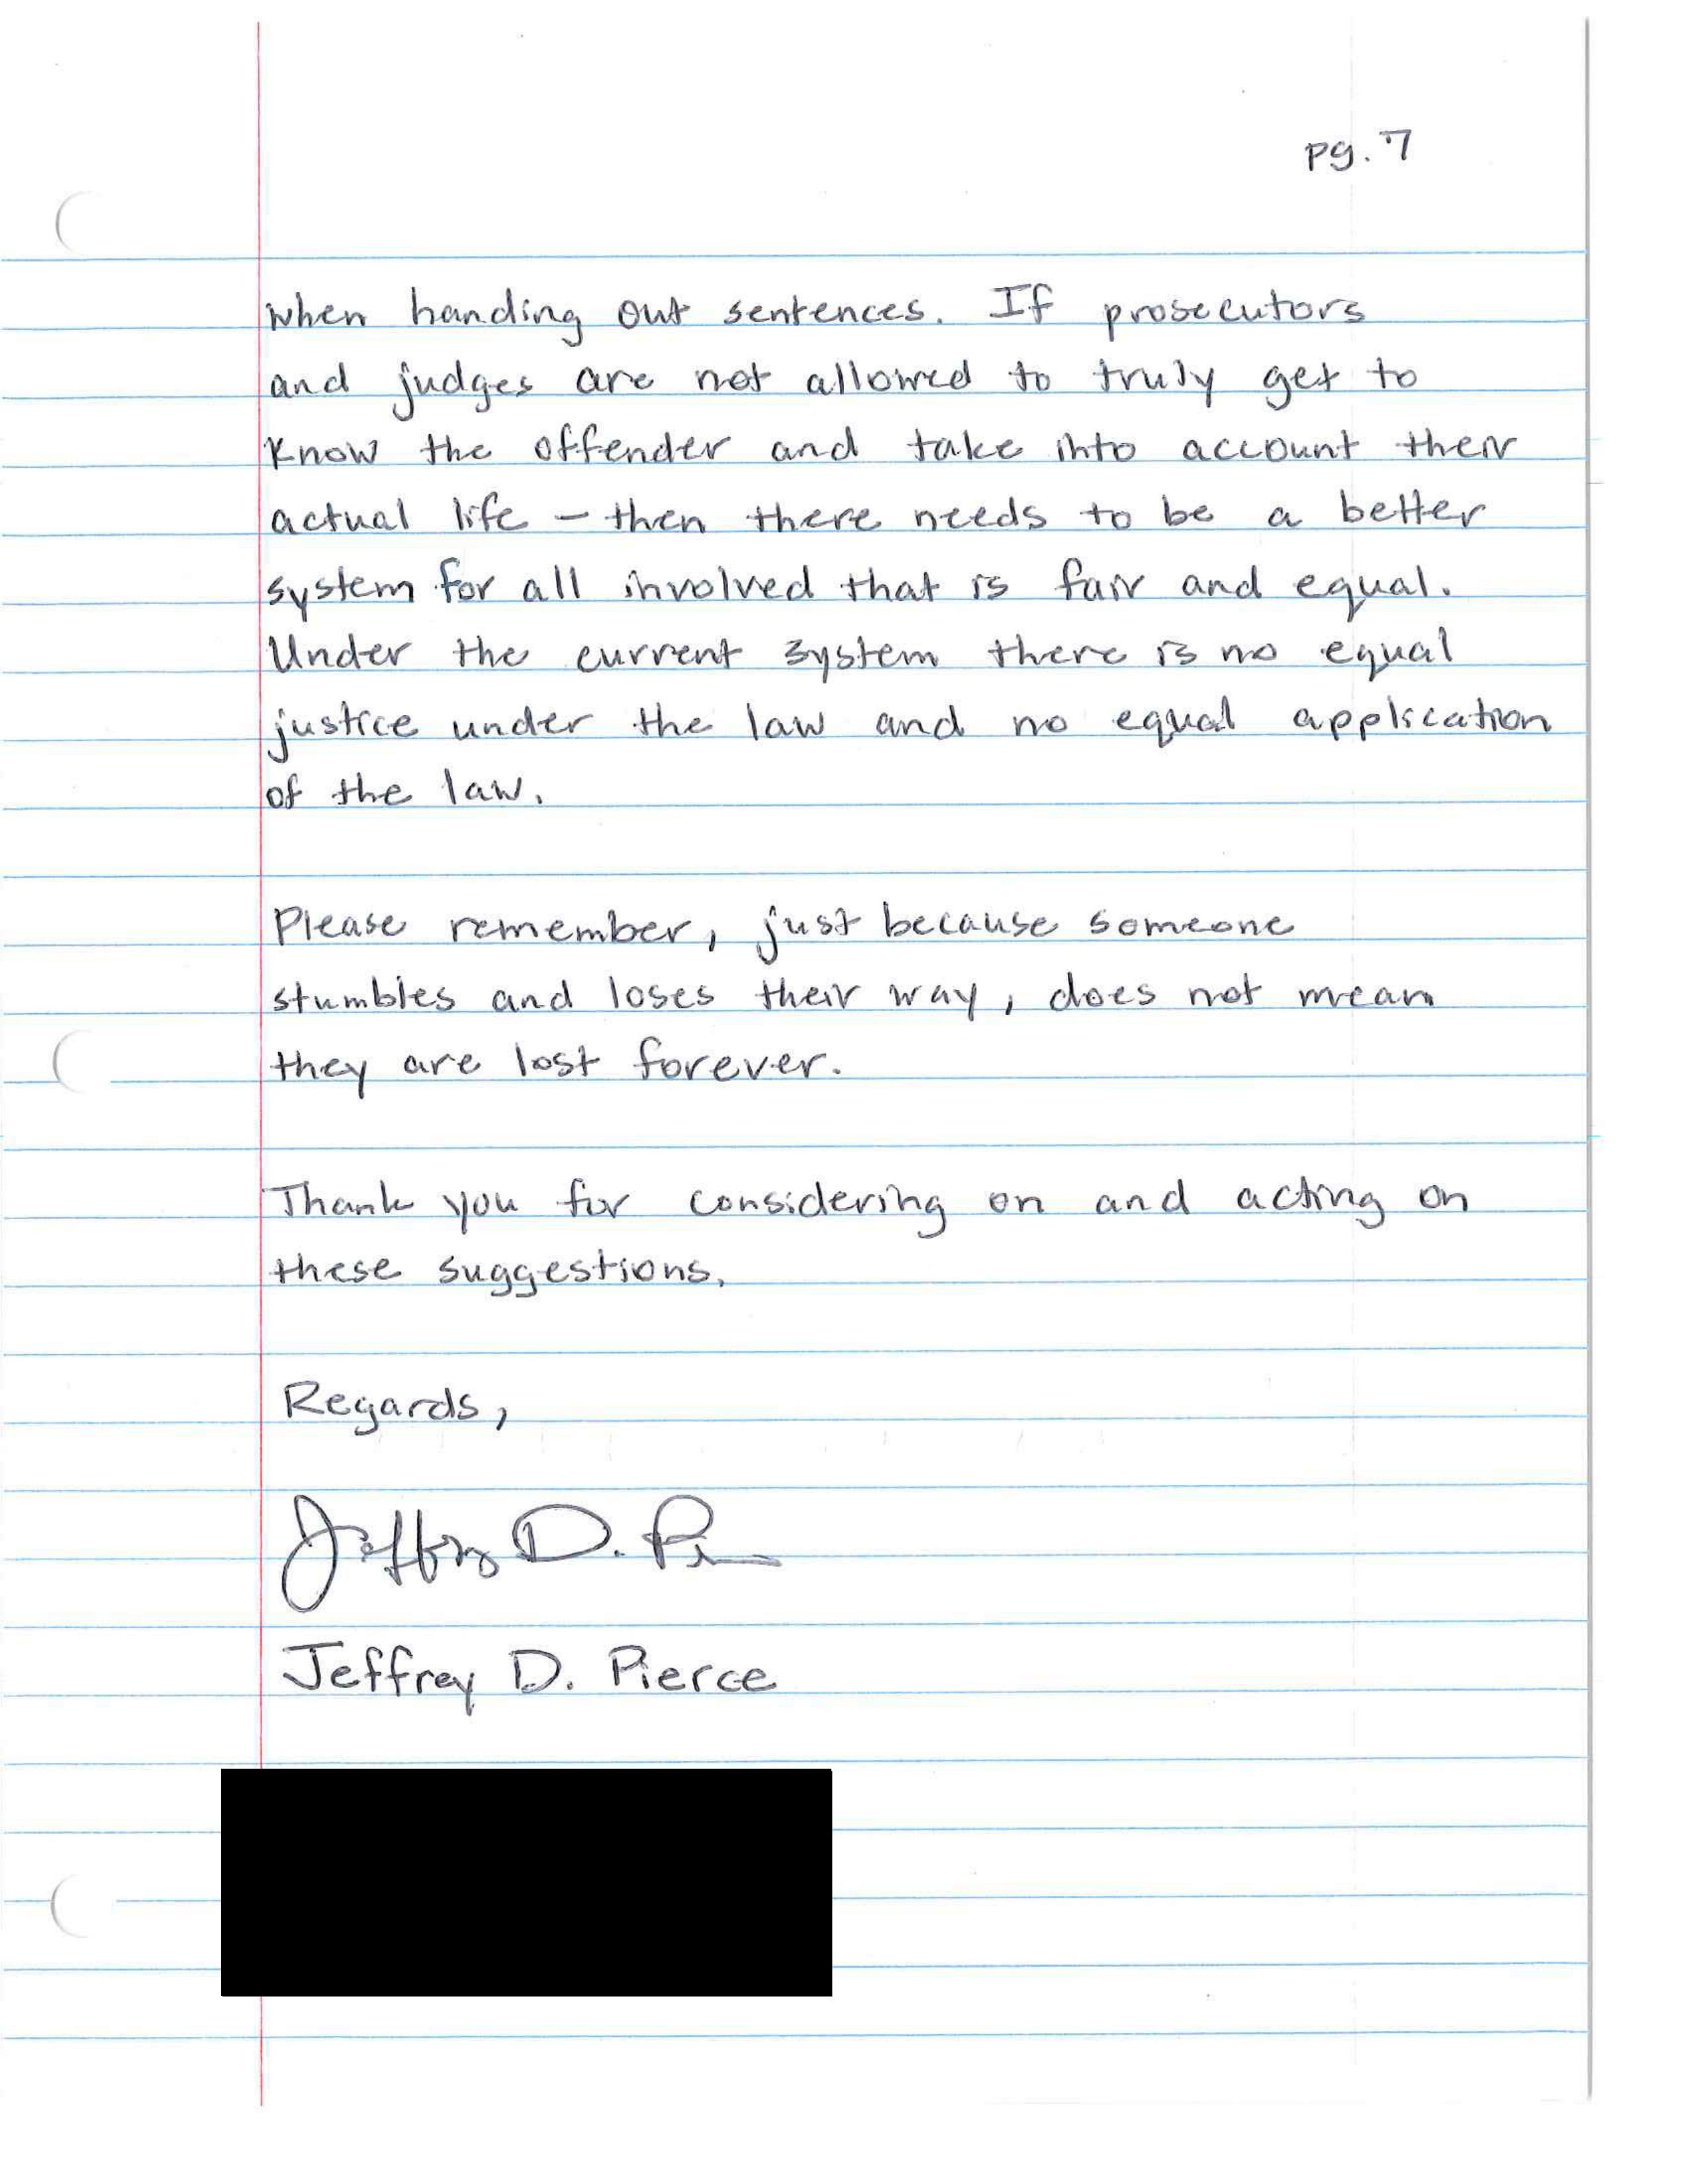 pg. 7
when handing out sentences. If prosecutors
and judges are not allowed to truly get to
know the offender and take into account their
actual life – then there needs to be a better
system for all involved that is fair and equal.
Under the current system there is no equal
justice under the law and no equal application
of the law.
Please remember, just because someone
stumbles and loses their way, does not mean
they are lost forever.
Thank you for considering on and acting on
these suggestions.
Regards,
Jeffrey D. P
Jeffrey D. Pierce